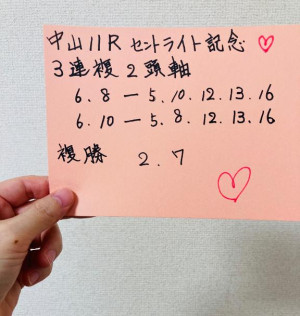 中山11R セントライト記念
3連複2頭軸
6.8－5.10.12.13.16
6.10－5.8.12.13.16
複勝 2.7